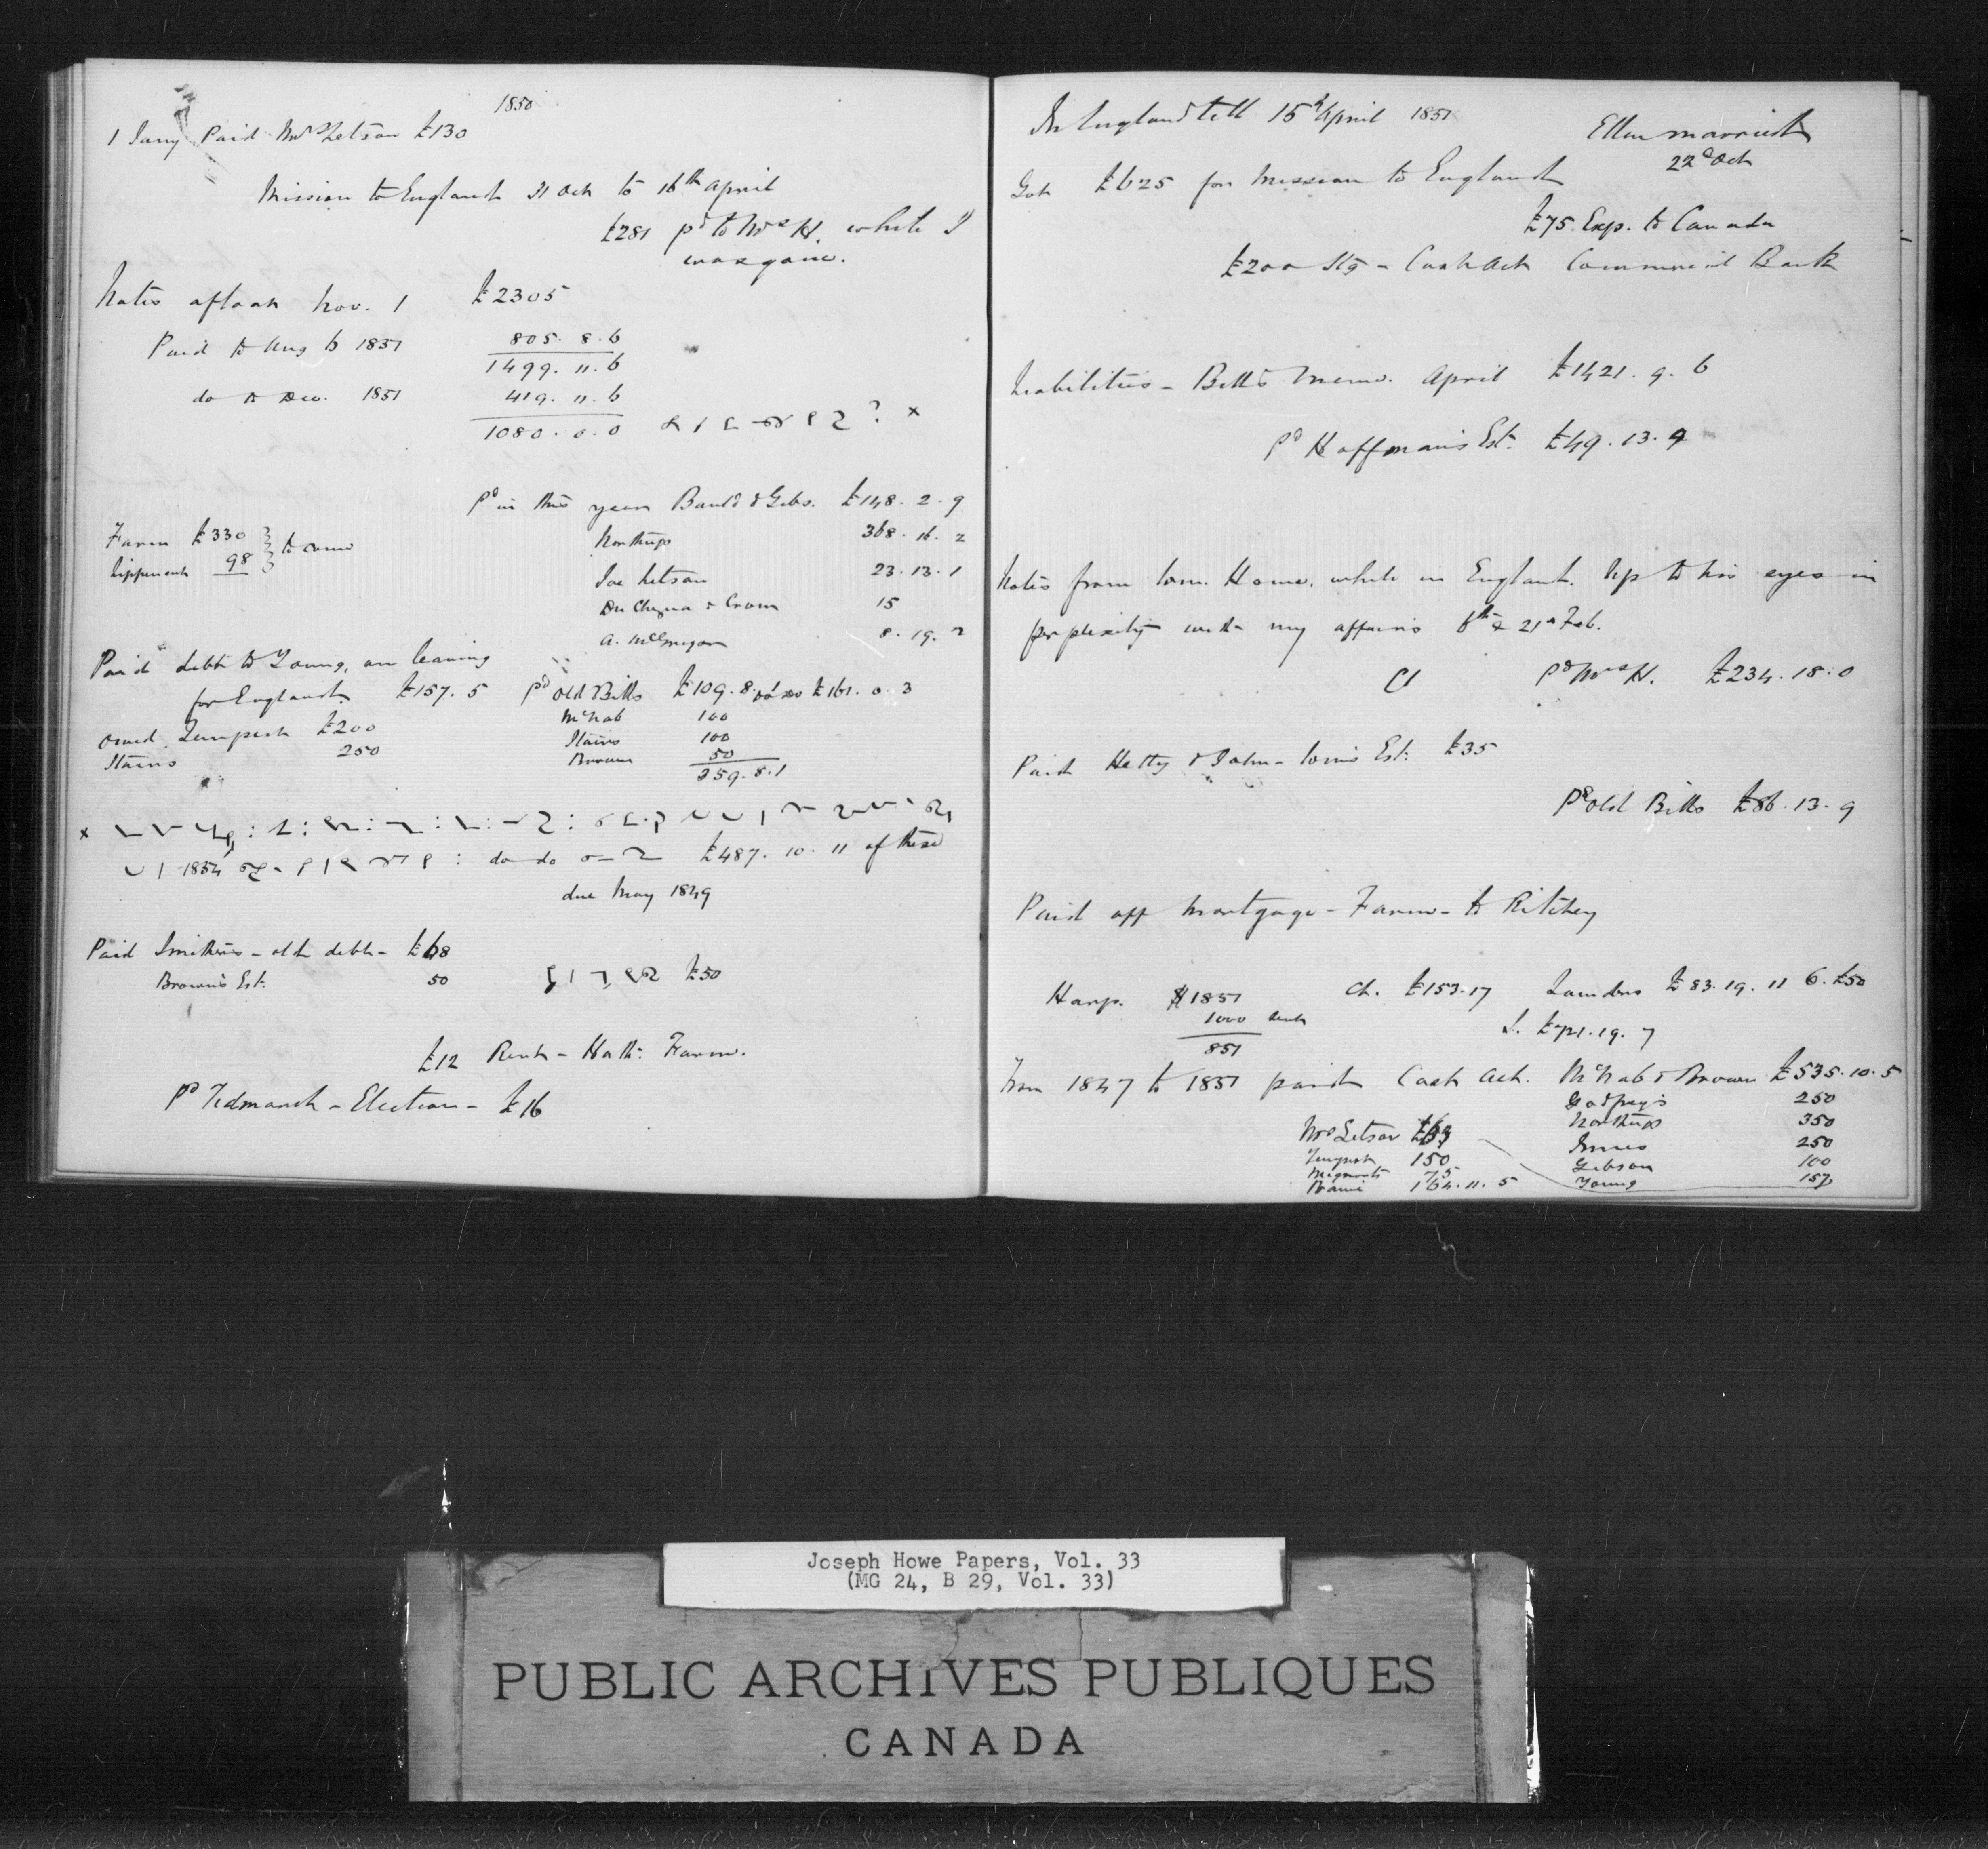 1850
1 Jany Paid Mrs Letson £130
Mission to England 31 Oct to 16th April
£281 pd to Mrs H. while I
was gone.
Notes afloat Nov. 1 £2305
Paid to Aug 6 1851 805. 8. 6
1499. 11. 6
do to Dec. 1851 419. 11. 6
1080. 0. 0
Pd in this year Bauld & Gibs. £148. 2. 9
Farm £330 } to come
98
Northup 368. 16. 2
Joe Letson 23. 13. 1
15
8. 19. 2
Paid debt to Young, on leaving
for England. £157. 5
Pd Old Bills £109. 8. do £161. 0. 3
McNab 100
owed Tempest £200
Stairs 100
Stairs 250
Brown 50
359. 8. 1
1854
do do £487. 10. 11 of these
due May 1849
Paid Smithers - old debt - £68
Brown's Est. 50
£50
£12 Rent - Hatt. Farm.
Pd Tidmarsh - Election - £16
In England till 15th April 1851
Ellen married
22d Oct
Got £625 for Mission to England
£75. Exp. to Canada
£200 Stg - Cash Act Commercial Bank
Liabilities - Bills Memo. April £1421. 9. 6
Pd Hoffman's Est. £49. 13. 9
Notes from Wm. Howe, while in England. Up to his eyes in
perplexity with my affairs 6th & 21st Feb.
Pd Mrs H. £234. 18. 0
Paid Hetty & John - Est. £35
Pd Old Bills £86. 13. 9
Paid off Mortgage - Farm - to Ritchey
Harp. $1851
1000
851
Ch. £153. 17
Saunders £83. 19. 11 6. £50
S. £71. 19. 7
From 1847 to 1851 paid Cash Act. McNab & Brown £535. 10. 5
Godfrey's 250
Northup 350
Mrs Letson
Innes 250
Tempest 150
Gibson 100
75
Young 157
164. 11. 5
Joseph Howe Papers, Vol. 33
(MG 24, B 29, Vol. 33)
PUBLIC ARCHIVES PUBLIQUES
CANADA